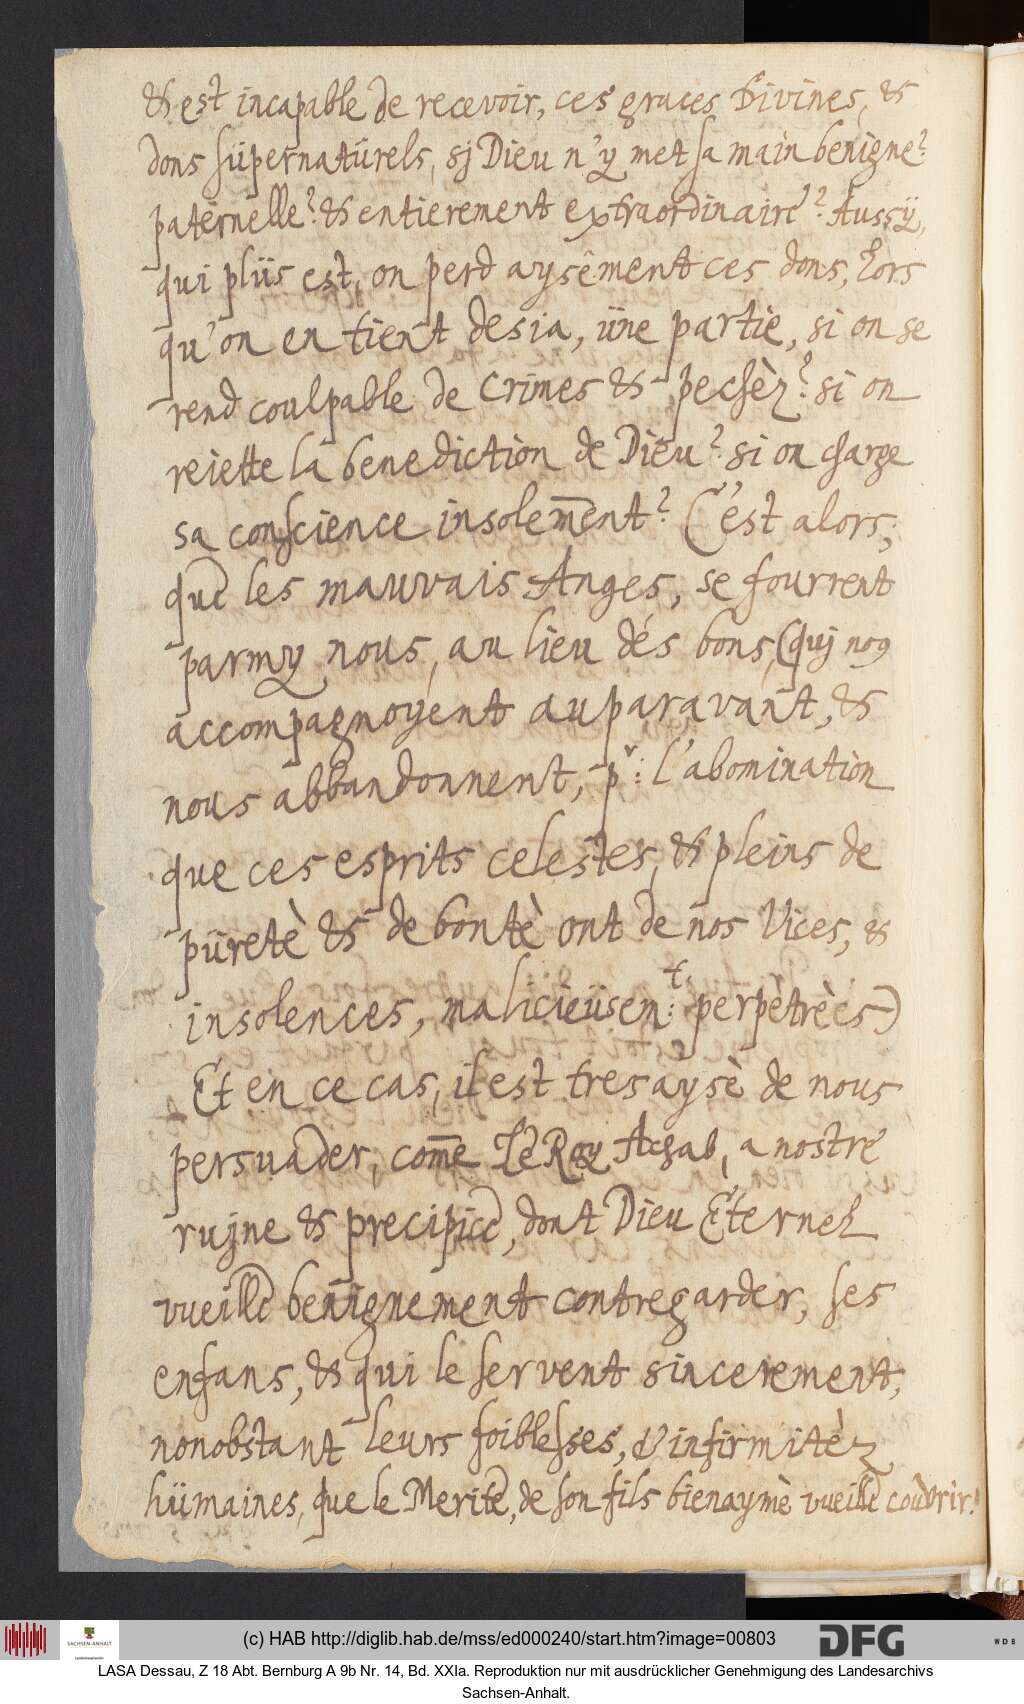 & est incapable de recevoir, ces graces Divines, &
dons süpernatürels, sj Dieu n'y met sa main benigne?
paternelle? & entierement extraordinaire? Aussÿ,
qui plüs est, on perd aysèment ces dons, lors
qu'on en tient desia, üne partie, si on se
rend coulpable de crimes & pechèz? si on
reiette la benediction de Dieu? si on charge
sa conscience insolem̄ent? C'est alors;
que les mauvais Anges, se fourrent
parmy nous, au lieu dés bons, (quj no9
accompagnoyent auparavant, &
nous abbandonnent, pr: l'abomination
que ces esprits celestes, & pleins de
püretè & de bontè ont de nos Vices, &
insolences, malicieüsem:t perpètrèes)
Et en ce cas, il est tres aysè de nous
persuader, com̄e Le Roy Achab, a nostre
rujne & precipice, dont Dieu Eternel
vueille benignement contregarder, ses
enfans, & qui le servent sincerement,
nonobstant leurs foiblesses, & infirmitèz
hümaines, que le Merite, de son fils bienaymè vueille couvrir!
(c) HAB http://diglib.hab.de/mss/ed000240/start.htm?image=00803
SACHSEN-ANHALT
DFG
WDB
LASA Dessau, Z 18 Abt. Bernburg A 9b Nr. 14, Bd. XXIa. Reproduktion nur mit ausdrücklicher Genehmigung des Landesarchivs
Sachsen-Anhalt.